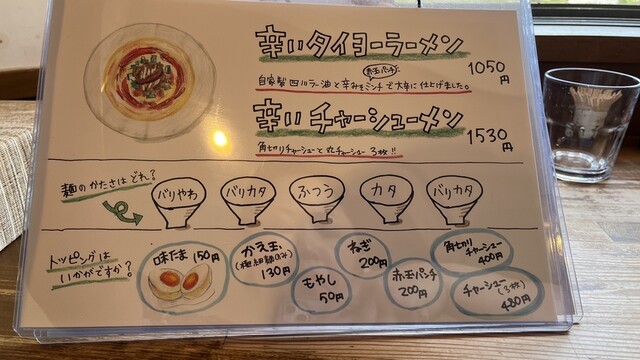 辛いタイヨーラーメン
1050円
赤玉パンチ
自家製四川ラー油と辛みそミンチで大年に仕上げました。
辛いチャーシューメン
1530円
角切りチャーシューと丸チャーシュー3枚!!
麺のかたさはどれ?
バリやわ
バリカタ
ふつう
カタ
バリカタ
トッピングは
いかがですか?
味たま 150円
かえ玉
(極細麺のみ)
130円
もやし
50円
ねぎ
200円
赤玉パンチ
200円
角切り
チャーシュー
400円
チャーシュー(3枚)
480円